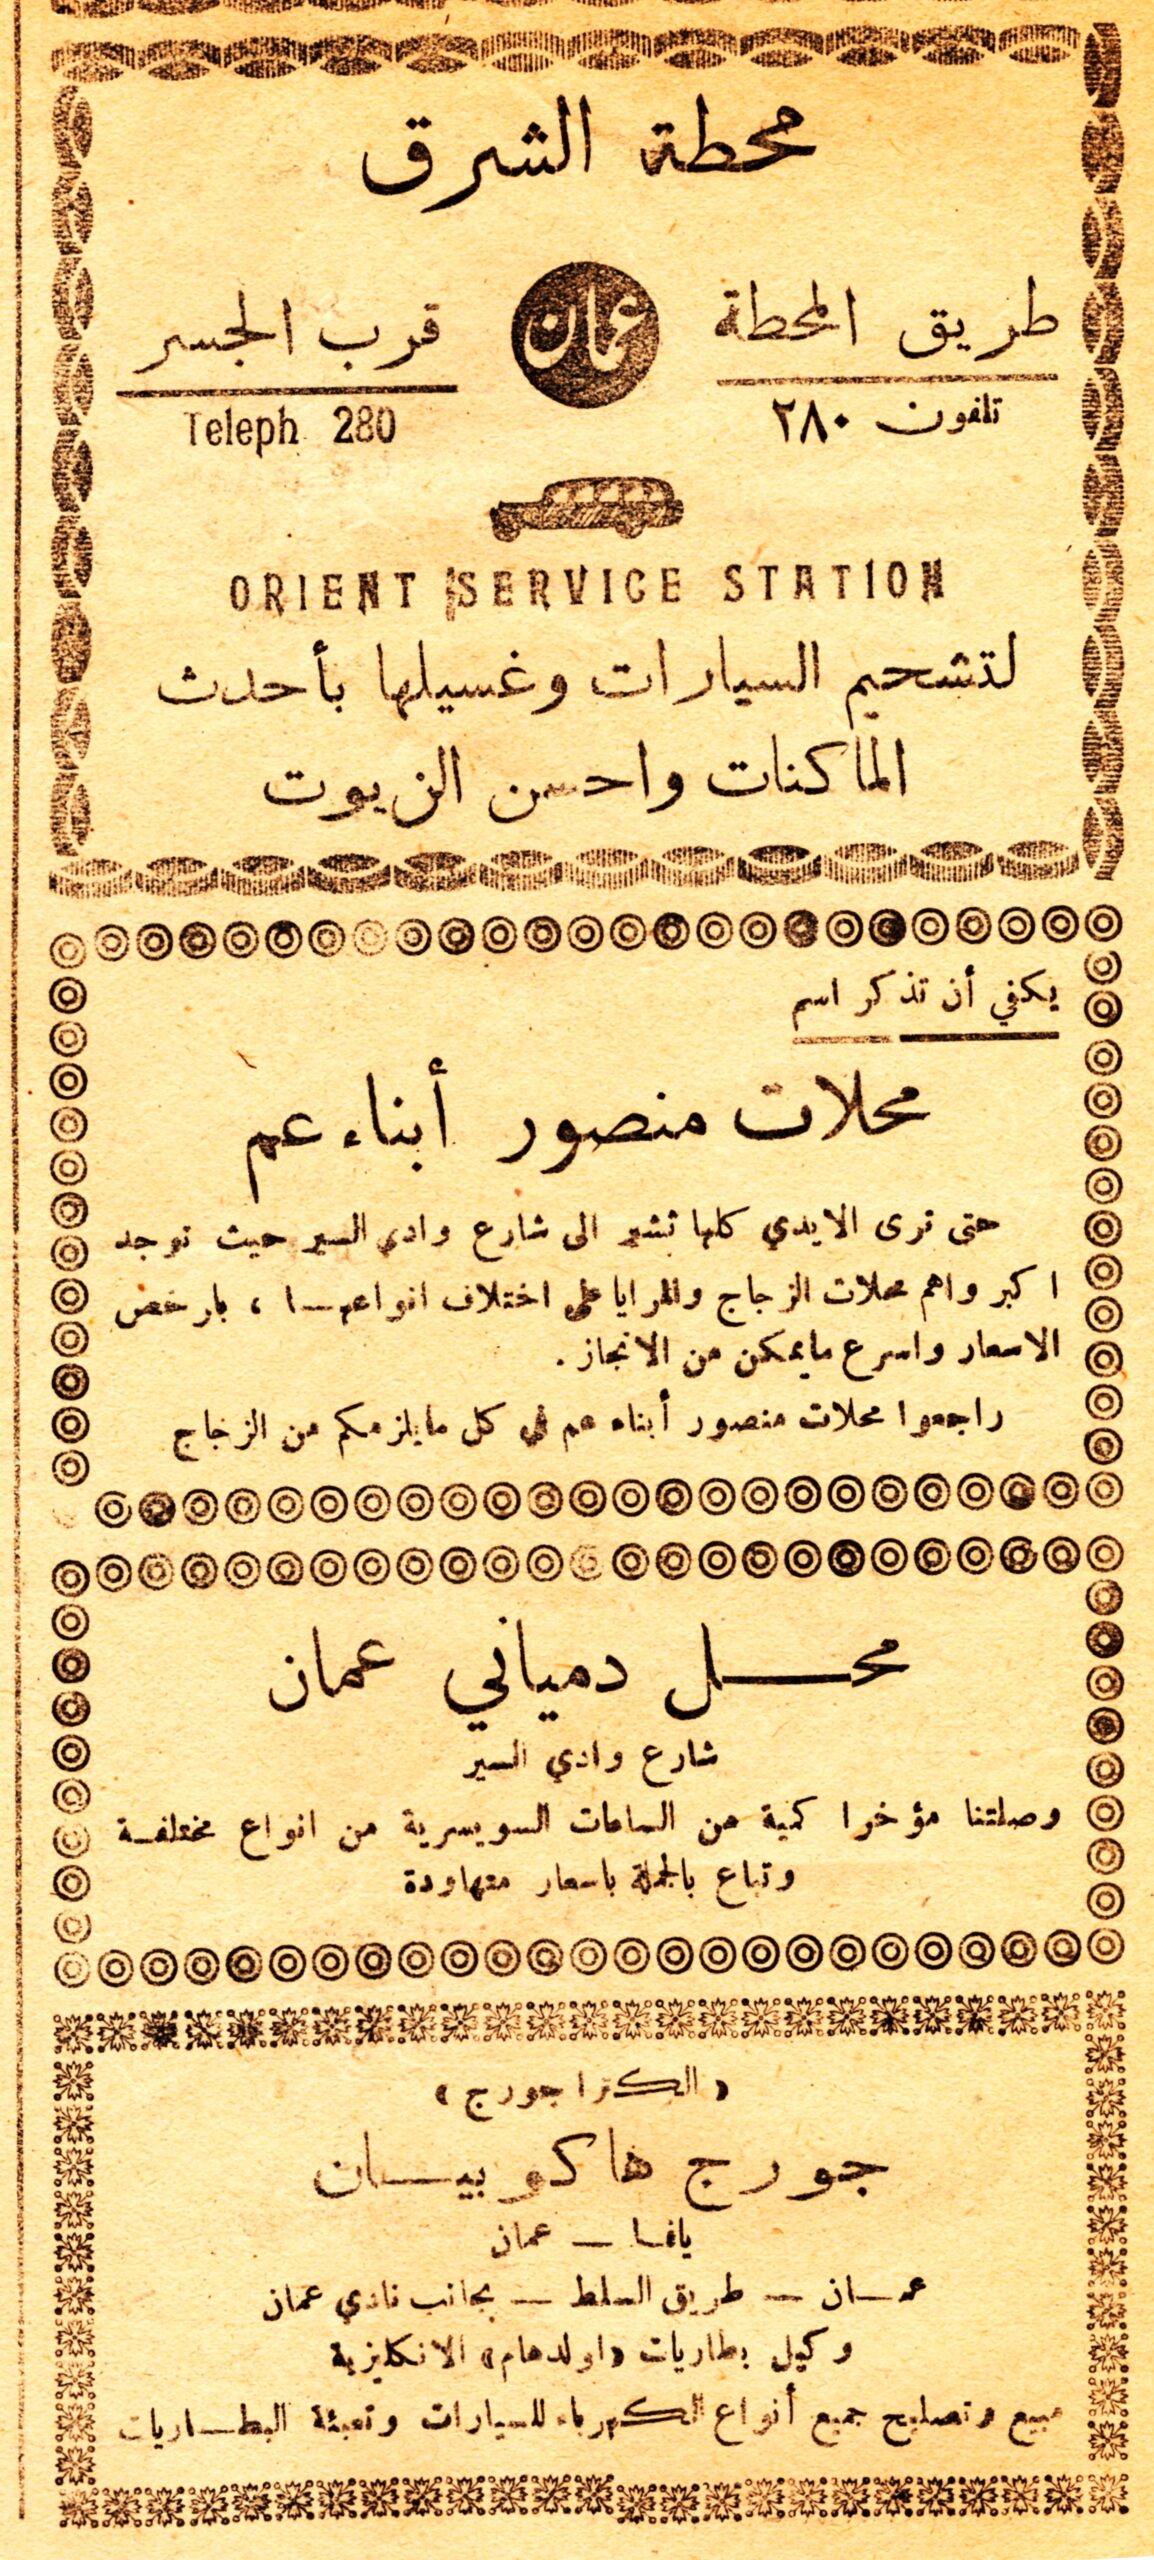 محطة الشرق
طريق المحطة عمان قرب الجسر
تلفون ٢٨٠ Teleph 280
ORIENT SERVICE STATION
لتشحيم السيارات وغسيلها بأحدث
الماكنات واحسن الزيوت
يكفي أن تذكر اسم
محلات منصور أبناء عم
حتى ترى الايدي كلها تشير الى شارع وادي السير حيث توجد
اكبر واهم محلات الزجاج والمرايا على اختلاف انواعهـا ، بارخص
الاسعار واسرع مايمكن من الانجاز .
راجعوا محلات منصور أبناء عم في كل مايلزمكم من الزجاج
محـــل دمياني عمان
شارع وادي السير
وصلتنا مؤخرا كمية من الساعات السويسرية من انواع مختلفـة
وتباع بالجملة باسعار متهاودة
« الكترا جورج »
جورج هاكوبيـــان
يافـا — عمان
عمـان — طريق السلط — بجانب نادي عمان
وكيل بطاريات «اولدهام» الانكليزية
مبيع وتصليح جميع أنواع الكهرباء للسيارات وتعبئة البطـاريات